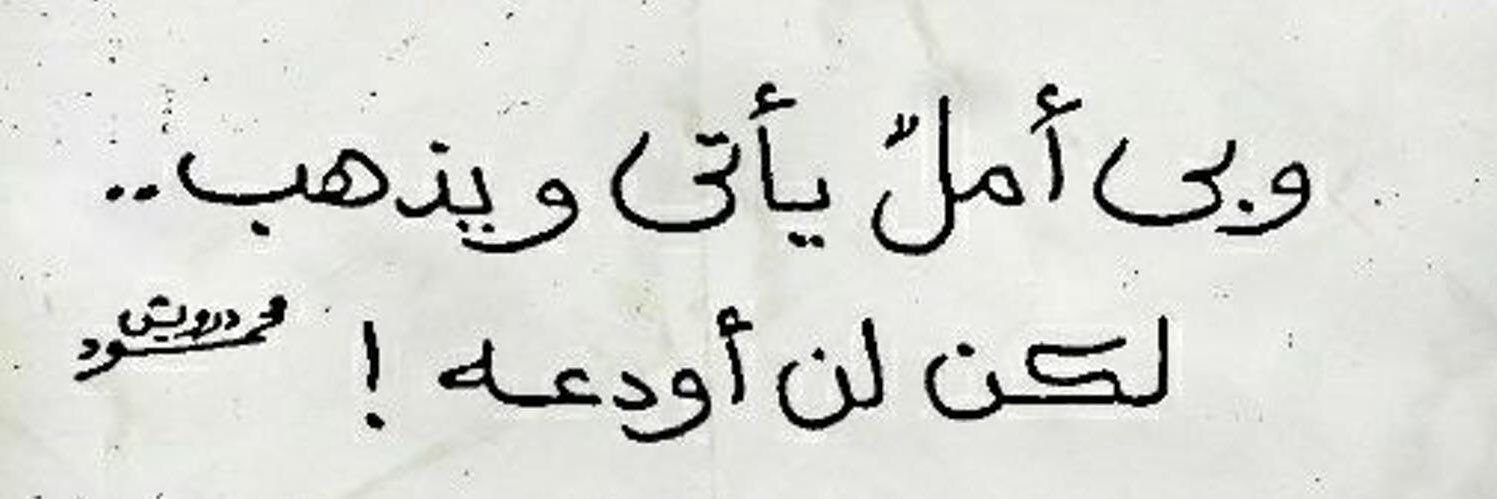 وبى أملٌ يأتى ويذهب..
لكن لن أودعه !
محمود درويش